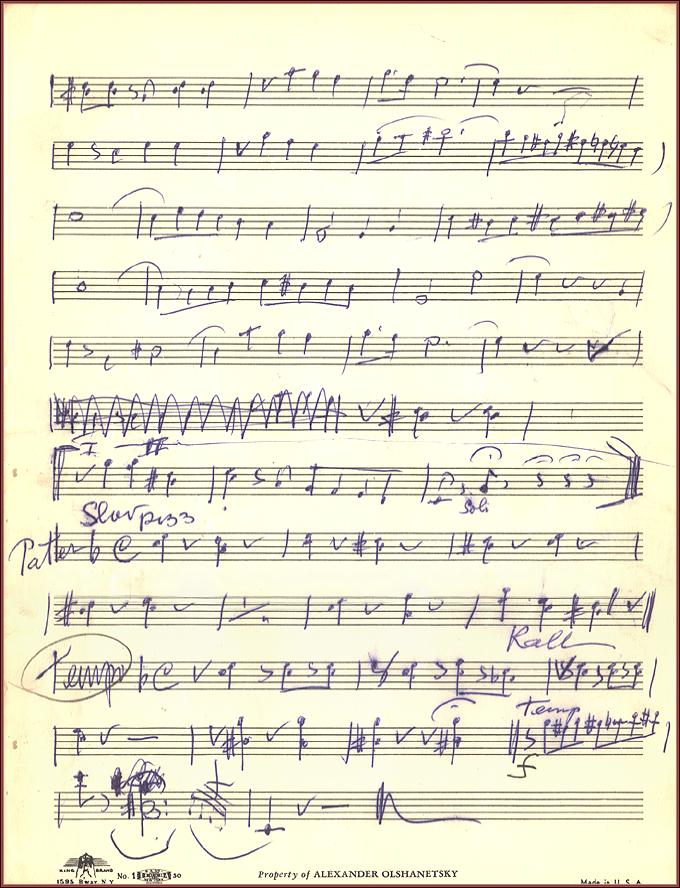 I II
Soli
Slow pizz
Patter
Rall
Temp
Temp
f
KING BRAND
1595 Bway. N.Y. No. 1 Property of ALEXANDER OLSHANETSKY Made in U.S.A.